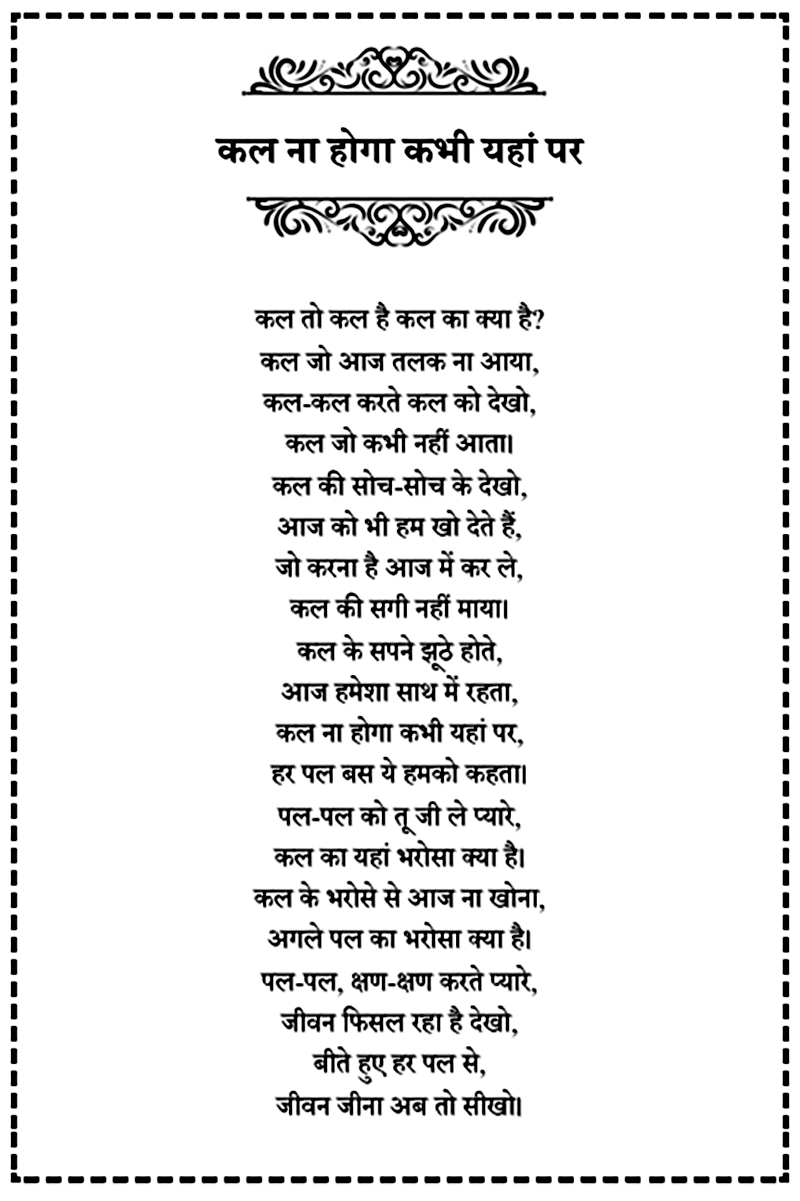 कल ना होगा कभी यहां पर
कल तो कल है कल का क्या है?
कल जो आज तलक ना आया,
कल-कल करते कल को देखो,
कल जो कभी नहीं आता।
कल की सोच-सोच के देखो,
आज को भी हम खो देते हैं,
जो करना है आज में कर ले,
कल की सगी नहीं माया।
कल के सपने झूठे होते,
आज हमेशा साथ में रहता,
कल ना होगा कभी यहां पर,
हर पल बस ये हमको कहता।
पल-पल को तू जी ले प्यारे,
कल का यहां भरोसा क्या है।
कल के भरोसे से आज ना खोना,
अगले पल का भरोसा क्या है।
पल-पल, क्षण-क्षण करते प्यारे,
जीवन फिसल रहा है देखो,
बीते हुए हर पल से,
जीवन जीना अब तो सीखो।